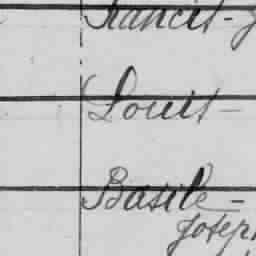 Francis -
Louis -
Basile -
Joseph